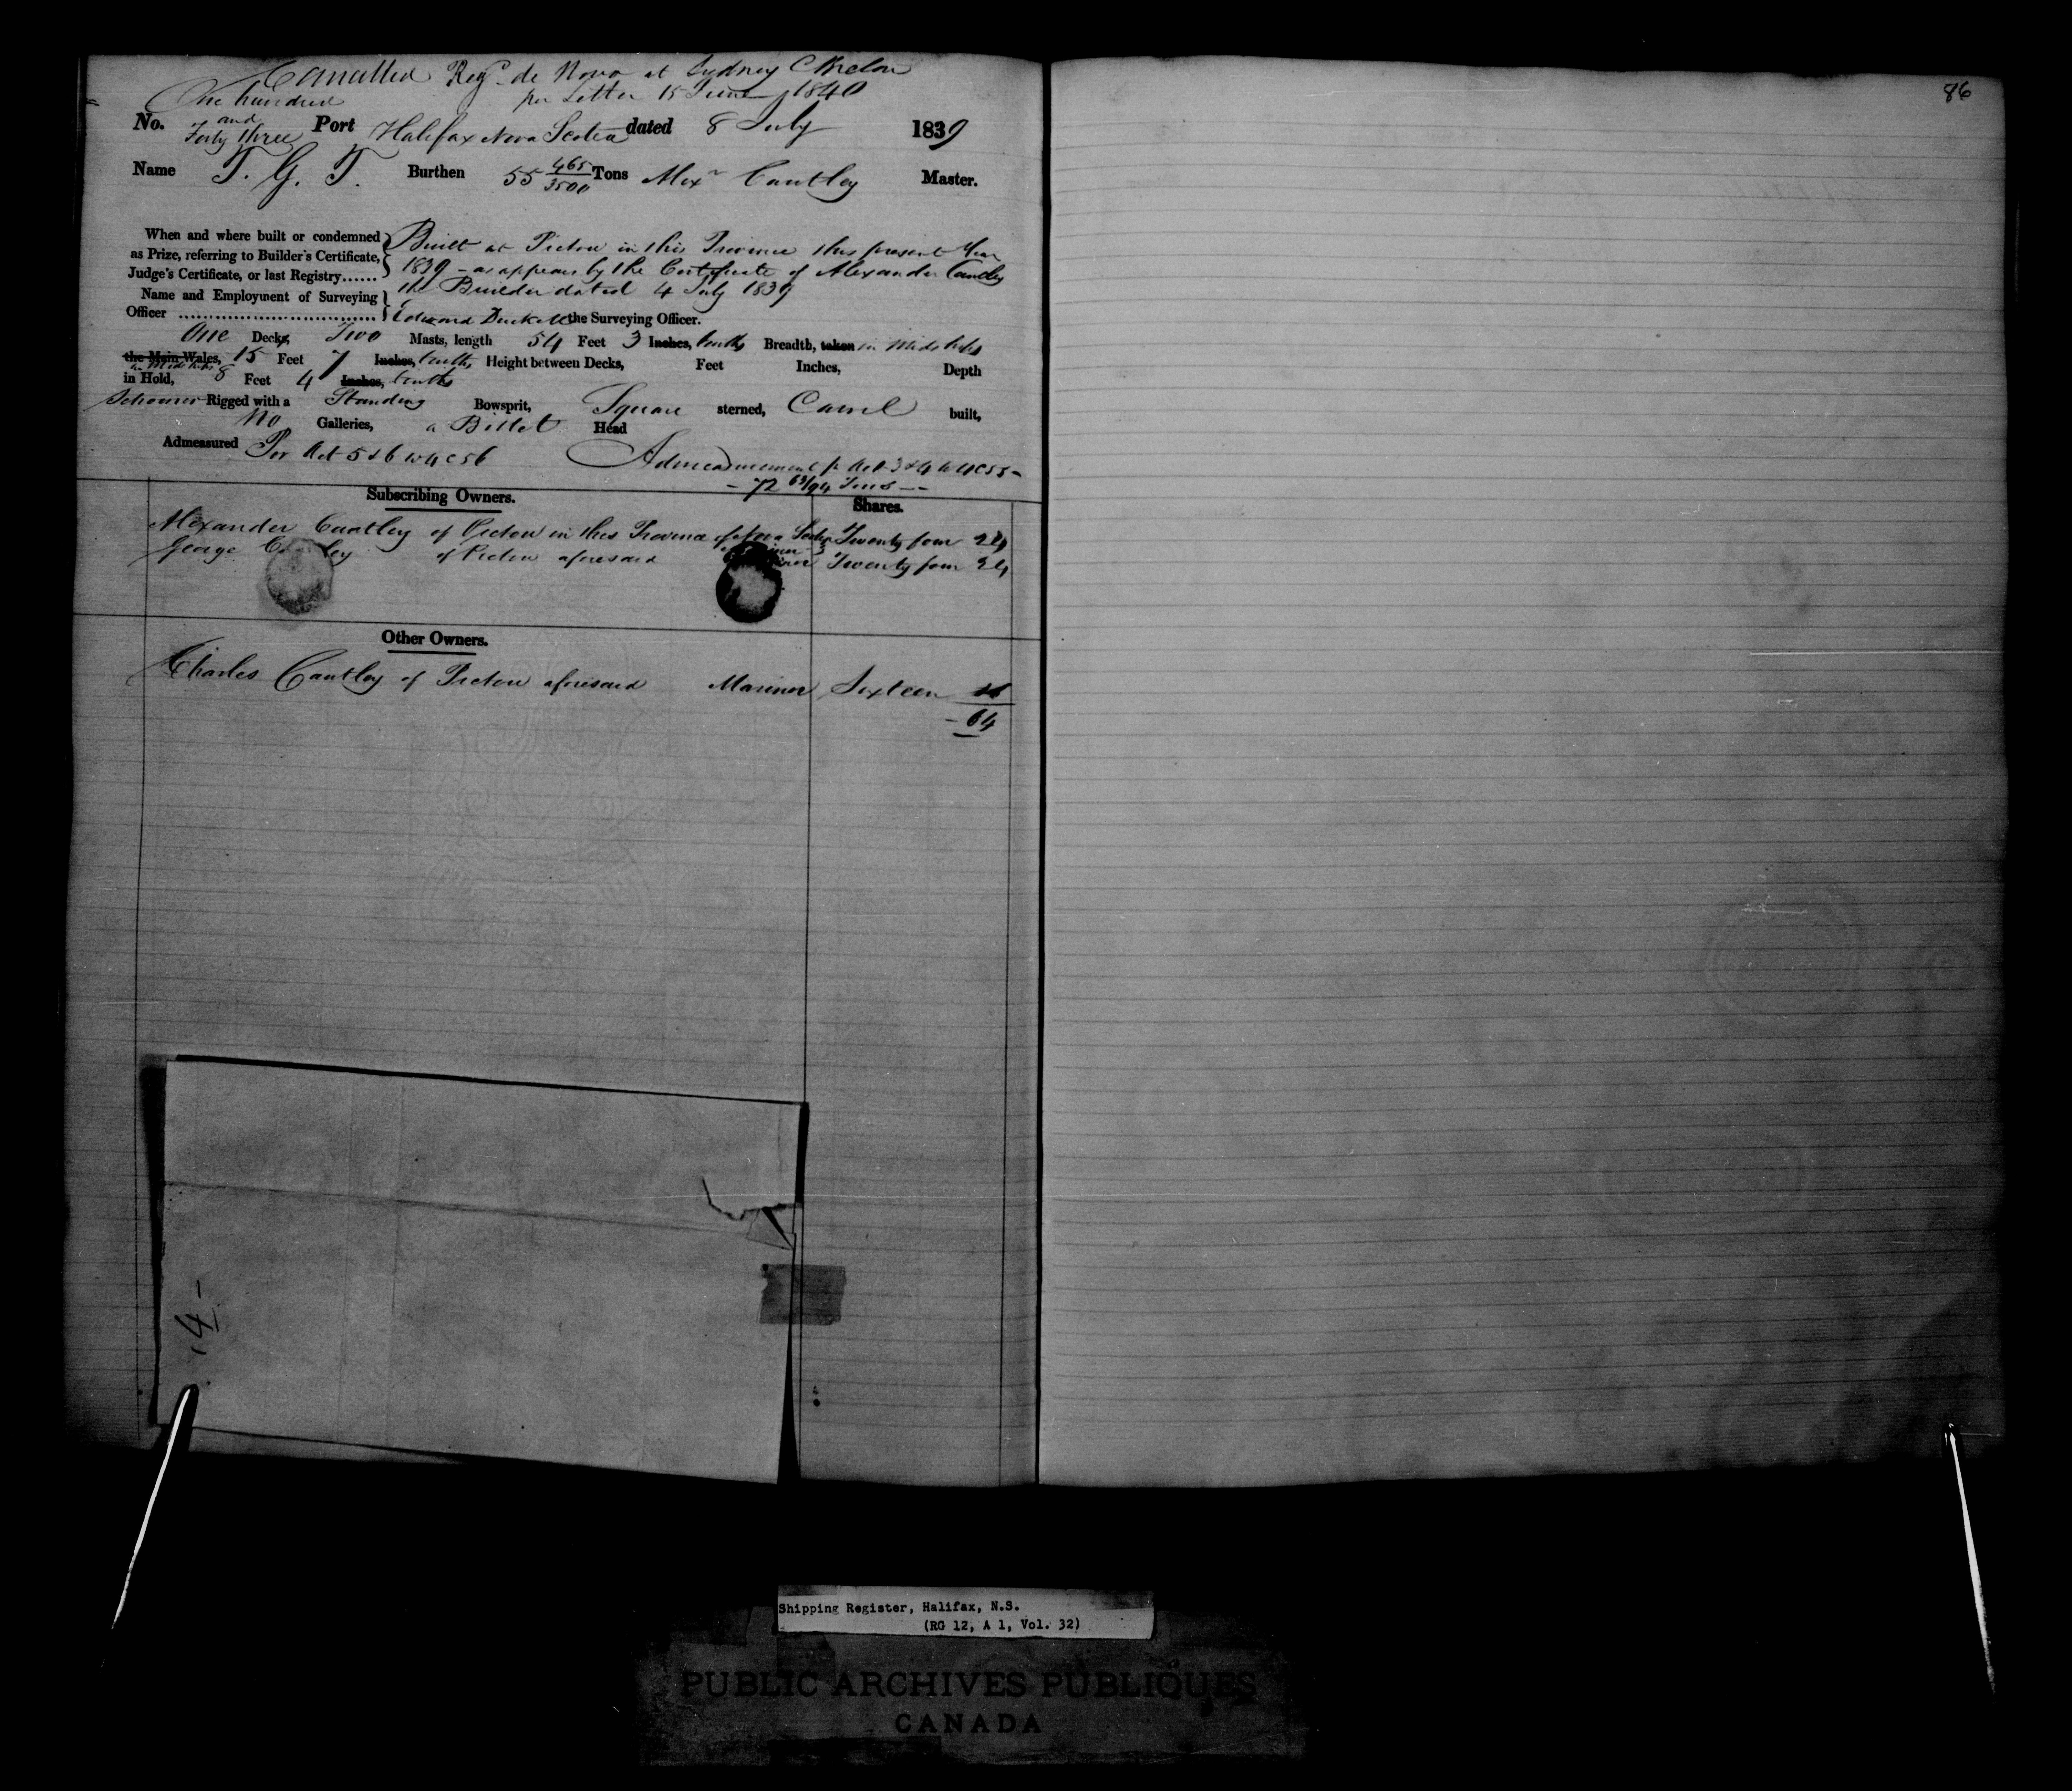 Cancelled Regd. de Novo at Sydney C Breton
per Letter 15 June 1840
86
No. One hundred and Forty three Port Halifax Nova Scotia dated 8 July 1839
Name T. G. T. Burthen 55 465/3500 Tons Alexr Cantley Master.
When and where built or condemned as Prize, referring to Builder's Certificate, Judge's Certificate, or last Registry......
Built at Pictou in this Province this present Year
1839 - as appears by the Certificate of Alexander Cantley
the Builder dated 4 July 1839
Name and Employment of Surveying
Officer .............................. Edward the Surveying Officer.
One Decks, Two Masts, length 54 Feet 3 Inches, tenths Breadth, taken in Midships
the Main Wales, 15 Feet 7 Inches, tenths Height between Decks, Feet Inches, Depth
in Midships
in Hold, 8 Feet 4 Inches, tenths
Schooner Rigged with a Standing Bowsprit, Square sterned, Carvel built,
No Galleries, a Billet Head
Admeasured Per Act 5 & 6 W 4 C 56 Admeasurement pr Act 3 & 4 W 4 C 55 -
- 72 Tons -
Subscribing Owners. Shares.
Alexander Cantley of Pictou in this Province of Nova Scotia Twenty four 24
George of Pictou aforesaid Twenty four 24
Other Owners.
Charles Cantley of Pictou aforesaid Mariner Sixteen 16
- 64
14 -
Shipping Register, Halifax, N.S.
(RG 12, A 1, Vol. 32)
PUBLIC ARCHIVES PUBLIQUES
CANADA